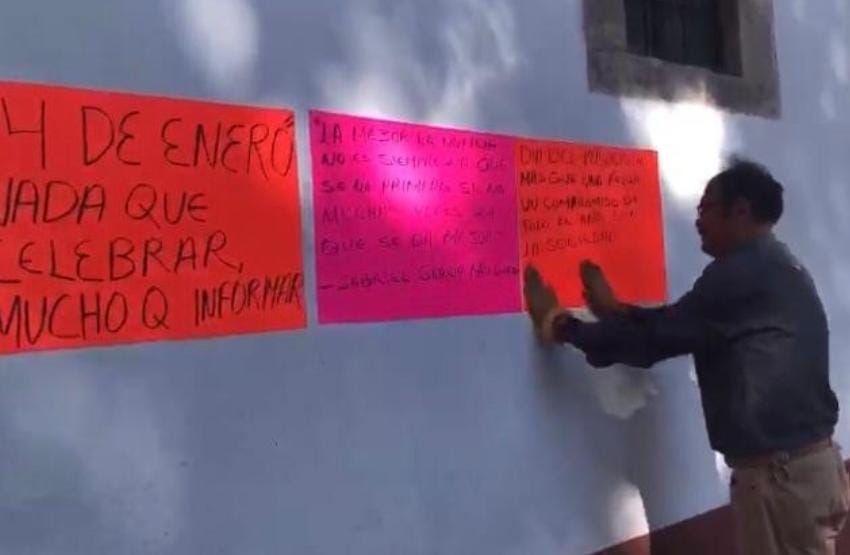 4 DE ENERO"
NADA QUE
CELEBRAR,
MUCHO Q INFORMAR
"LA MEJOR LA NOTICIA
NO ES SIEMPRE LA QUE
SE DA PRIMERO SI NO
MUCHAS VECES LA
QUE SE DA MEJOR"
-GABRIEL GARCIA MARQUEZ
DIA DEL PERIODISTA
MAS QUE UNA FECHA
UN COMPROMISO DE
TODO EL AÑO CON
LA SOCIEDAD